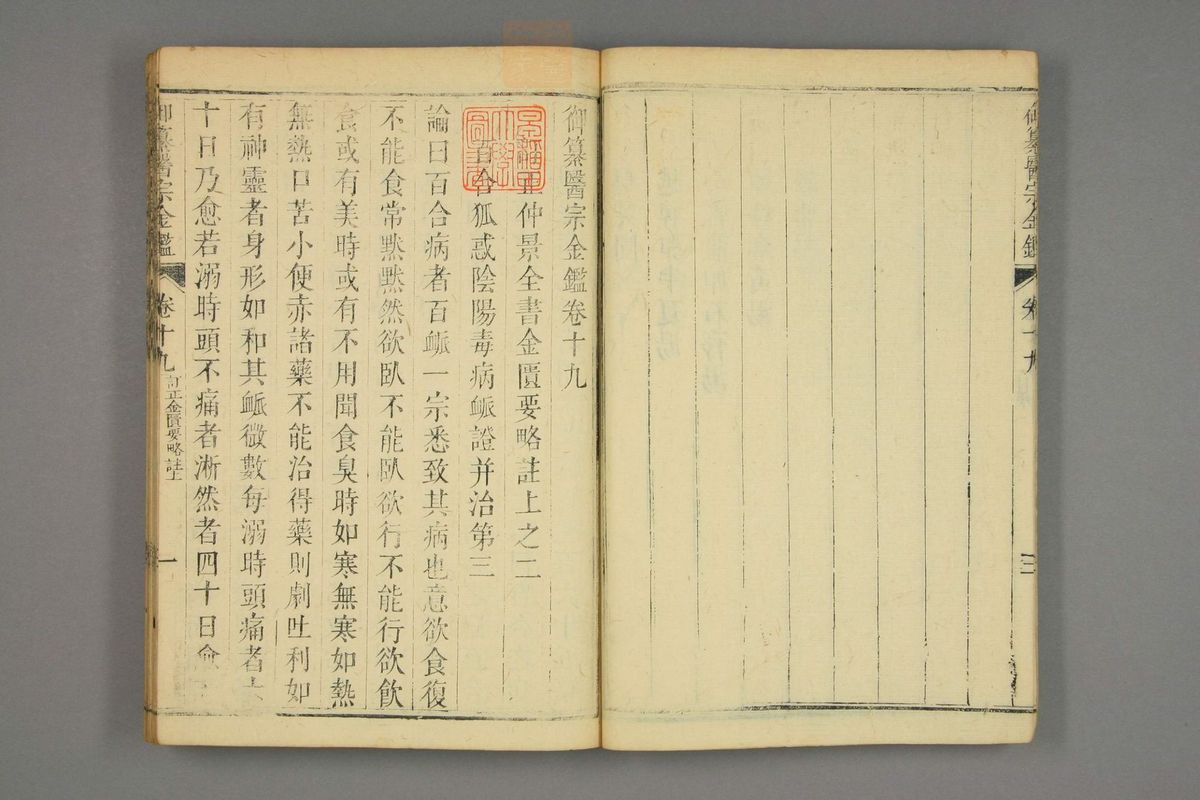 御纂醫宗金鑑 卷十九 三
御纂醫宗金鑑卷十九
訂正仲景全書金匱要略註上之二
百合狐惑陰陽毒病衇證并治第三
論曰百合病者百衇一宗悉致其病也意欲食復
不能食常默默然欲臥不能臥欲行不能行欲飲
食或有美時或有不用聞食臭時如寒無寒如熱
無熱口苦小便赤諸藥不能治得藥則劇吐利如
有神靈者身形如和其衇微數每溺時頭痛者六
十日乃愈若溺時頭不痛者淅然者四十日愈
御纂醫宗金鑑 卷十九 訂正金匱要略註上 一